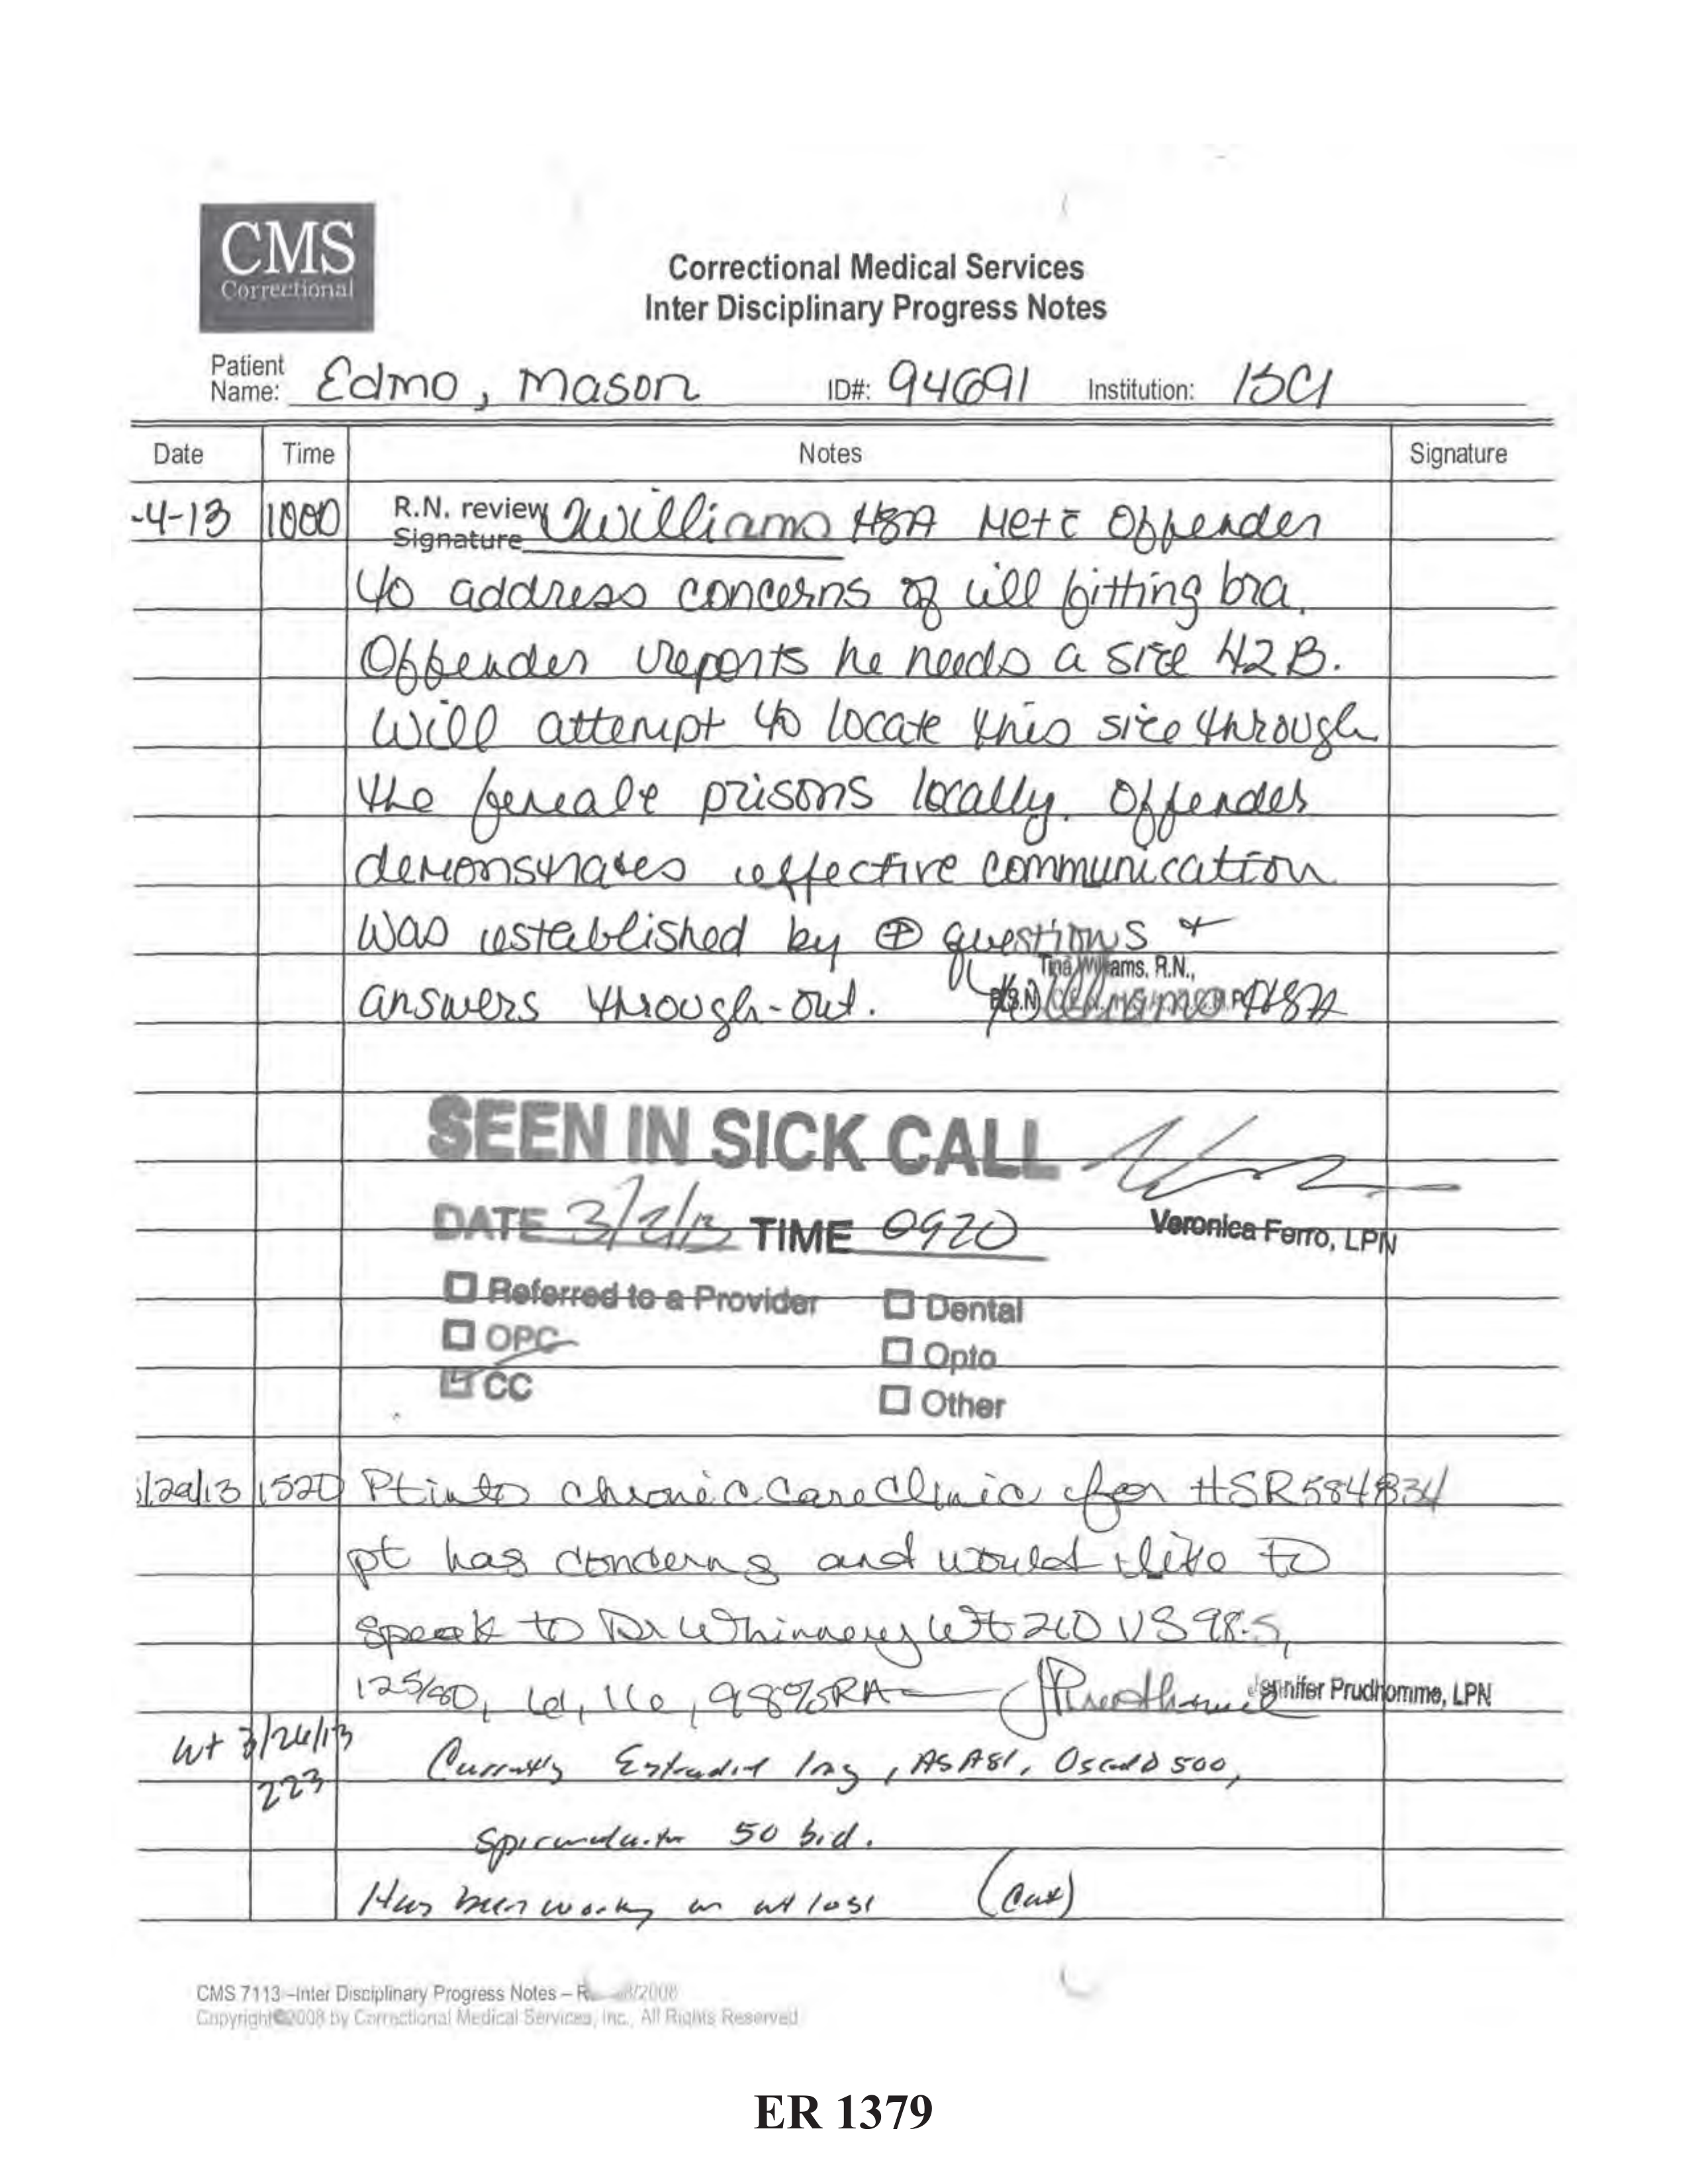 CMS
Correctional
Correctional Medical Services
Inter Disciplinary Progress Notes
Patient
Name: Edmo, Mason ID#: 94691 Institution: ISCI
Date Time Notes Signature
-4-13 1000 R.N. review
Signature Williams HSA Met c̄ Offender
to address concerns of ill fitting bra.
Offender reports he needs a size 42B.
Will attempt to locate this size through
the female prisons locally. Offender
demonstrates effective communication
was established by ⊕ questions +
answers through-out. Tina Williams, R.N., HSA
SEEN IN SICK CALL
DATE TIME 0920 Veronica Ferro, LPN
☐ Referred to a Provider ☐ Dental
☐ OPC ☐ Opto
☑ CC ☐ Other
/29/13 1520 Pt into chronic care clinic for HSR 584834
pt has concerns and would like to
speak to Dr Whinnery Wt 210 VS 98.5,
125/80, 16, 98% RA Jennifer Prudhomme, LPN
Wt 3/26/13
223 Currently Estradiol, ASA 81, Oscal D 500,
50 bid.
Has been working on wt loss
CMS 7113 –Inter Disciplinary Progress Notes – /2008
Copyright©2008 by Correctional Medical Services, Inc., All Rights Reserved
ER 1379